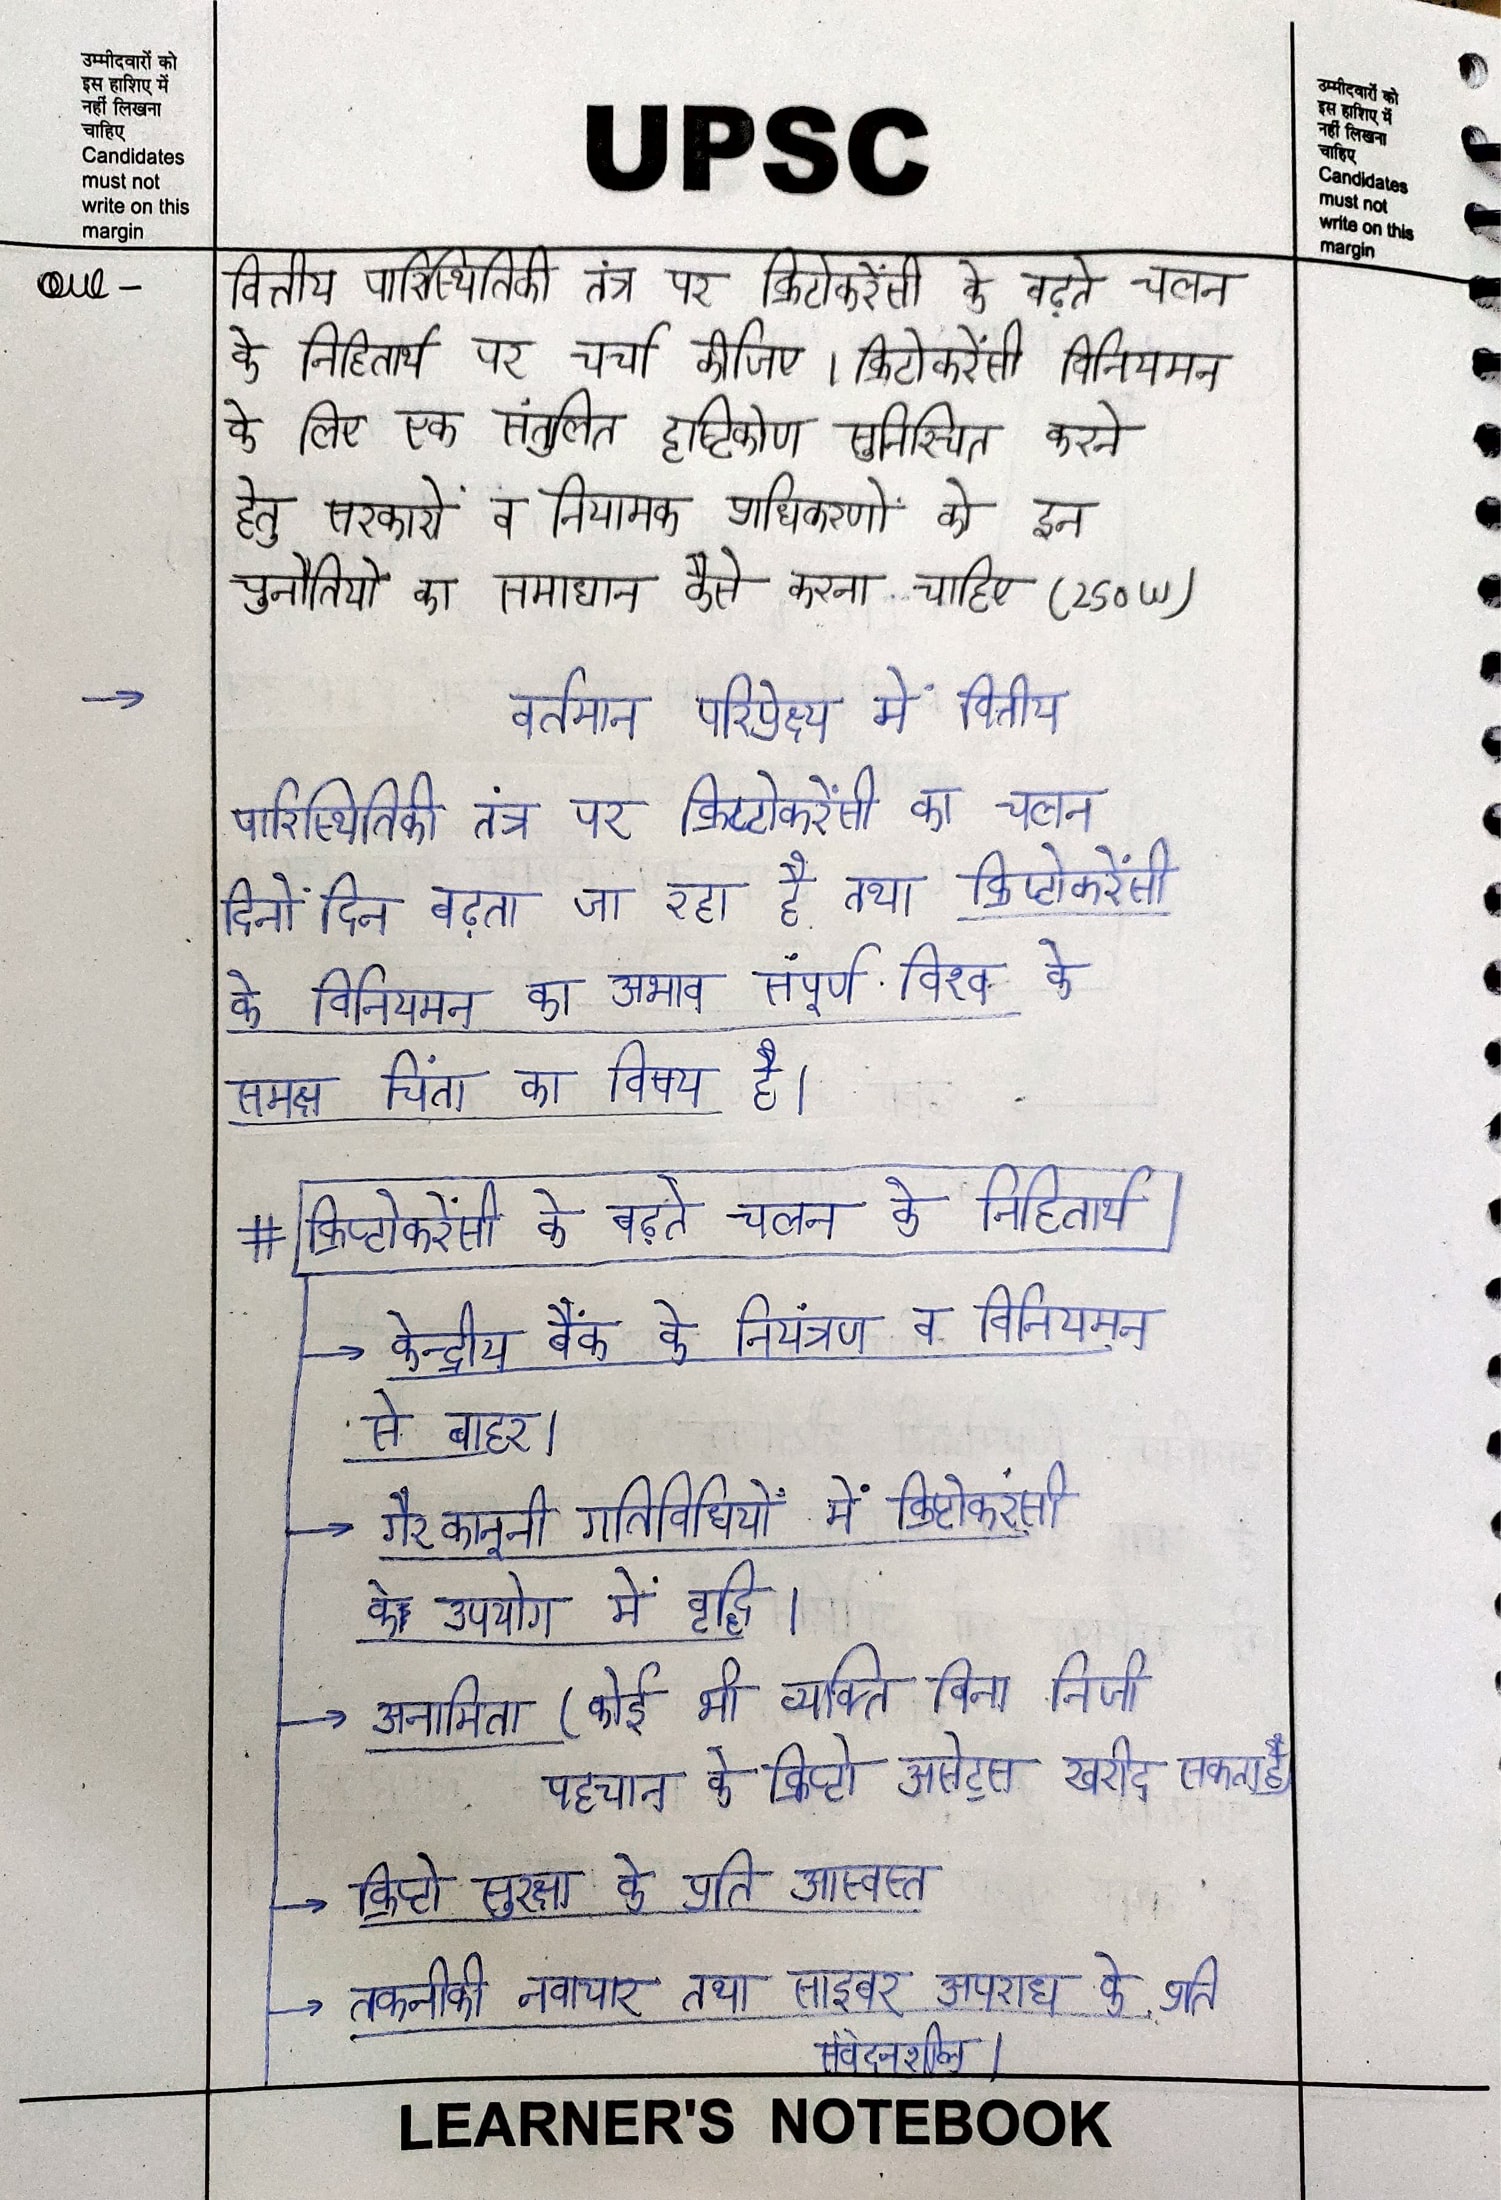 उम्मीदवारों को
इस हाशिए में
नहीं लिखना
चाहिए
Candidates
must not
write on this
margin
UPSC
उम्मीदवारों को
इस हाशिए में
नहीं लिखना
चाहिए
Candidates
must not
write on this
margin
Que -
वित्तीय पारिस्थितिकी तंत्र पर क्रिटोकरेंसी के बढ़ते चलन
के निहितार्थ पर चर्चा कीजिए । क्रिटोकरेंसी विनियमन
के लिए एक संतुलित दृष्टिकोण सुनिस्चित करने
हेतु सरकारों व नियामक प्राधिकरणों को इन
चुनौतियों का समाधान कैसे करना चाहिए (250 W)
→ वर्तमान परिप्रेक्ष्य में वित्तीय
पारिस्थितिकी तंत्र पर क्रिप्टोकरेंसी का चलन
दिनों दिन बढ़ता जा रहा है तथा क्रिप्टोकरेंसी
के विनियमन का अभाव संपूर्ण विश्व के
समक्ष चिंता का विषय है।
# क्रिप्टोकरेंसी के बढ़ते चलन के निहितार्थ
→ केन्द्रीय बैंक के नियंत्रण व विनियमन
से बाहर।
→ गैर कानूनी गतिविधियों में क्रिप्टोकरंसी
के उपयोग में वृद्धि ।
→ अनामिता (कोई भी व्यक्ति बिना निजी
पहचान के क्रिप्टो असेट्स खरीद सकता है)
→ क्रिप्टो सुरक्षा के प्रति आस्वस्त
→ तकनीकी नवाचार तथा साइबर अपराध के प्रति
संवेदनशील ।
LEARNER'S NOTEBOOK